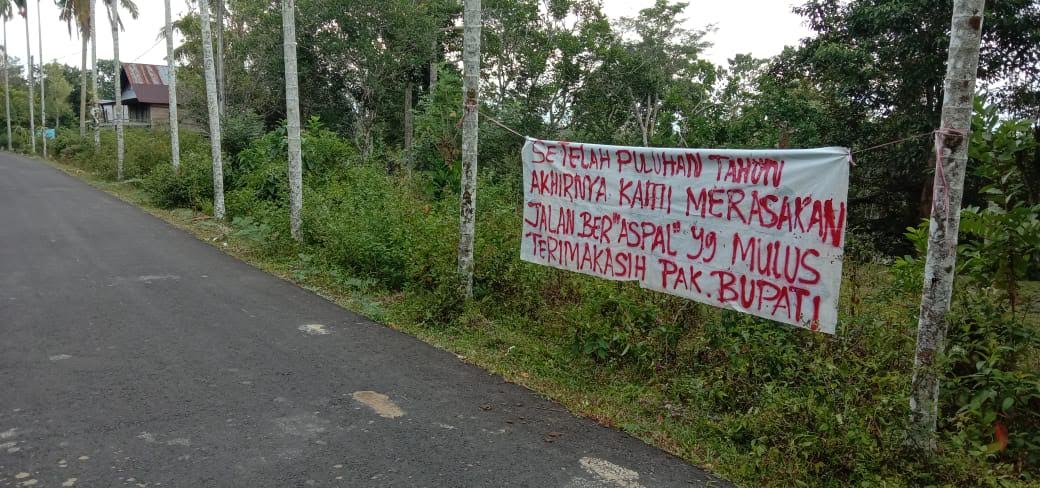 SETELAH PULUHAN TAHUN
AKHIRNYA KAMI MERASAKAN
JALAN BER"ASPAL" yg MULUS
TERIMAKASIH PAK. BUPATI